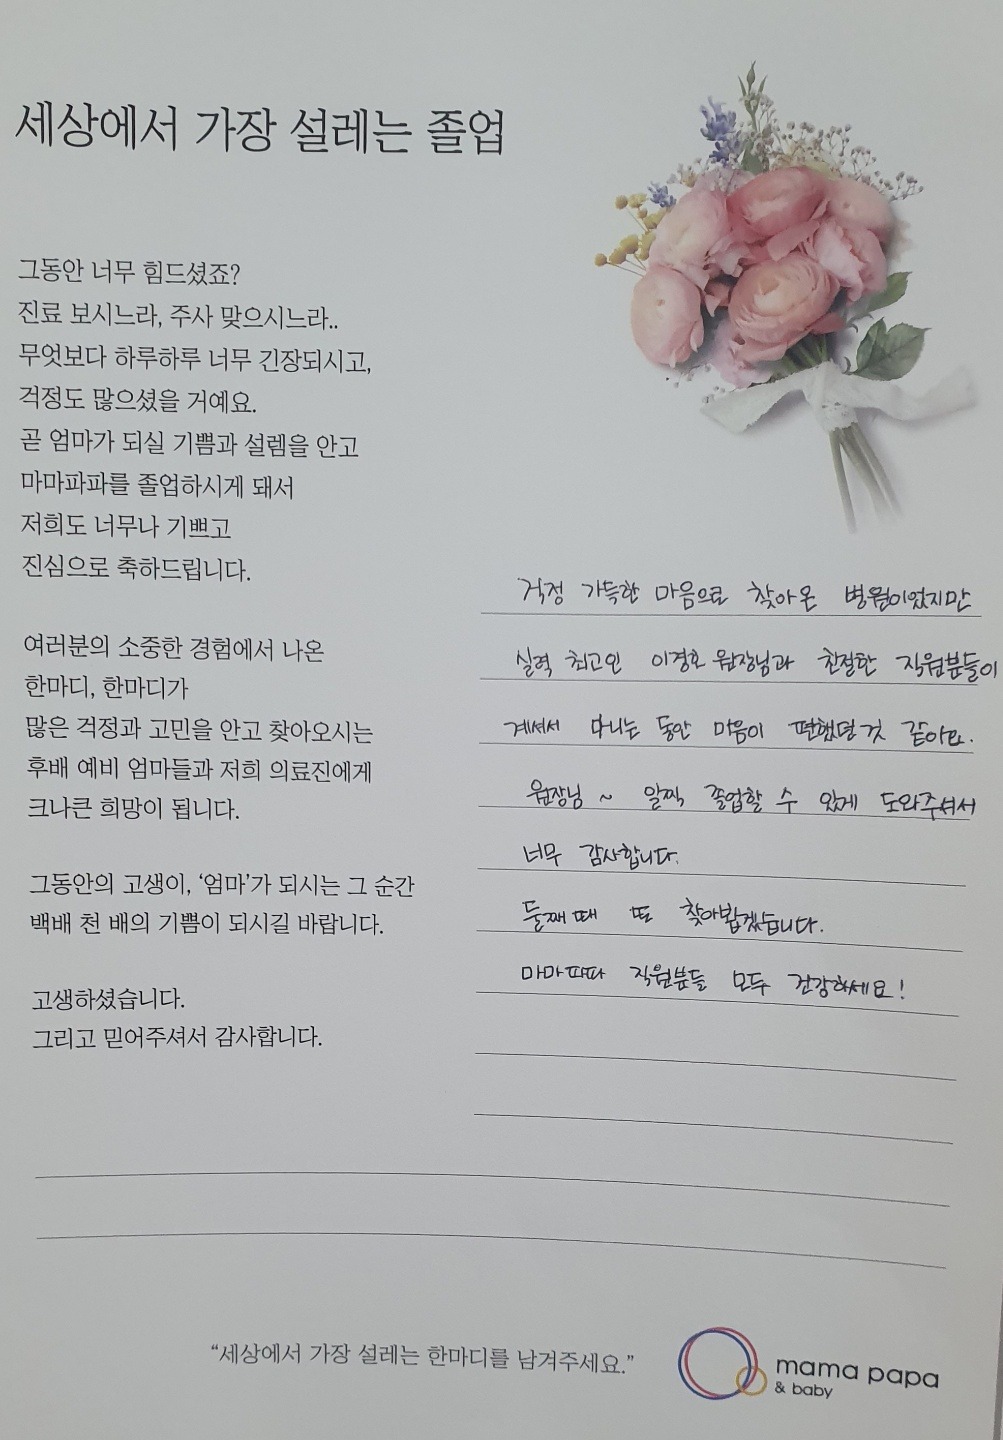 세상에서 가장 설레는 졸업
그동안 너무 힘드셨죠?
진료 보시느라, 주사 맞으시느라..
무엇보다 하루하루 너무 긴장되시고,
걱정도 많으셨을 거예요.
곧 엄마가 되실 기쁨과 설렘을 안고
마마파파를 졸업하시게 돼서
저희도 너무나 기쁘고
진심으로 축하드립니다.
여러분의 소중한 경험에서 나온
한마디, 한마디가
많은 걱정과 고민을 안고 찾아오시는
후배 예비 엄마들과 저희 의료진에게
크나큰 희망이 됩니다.
그동안의 고생이, ‘엄마’가 되시는 그 순간
백배 천 배의 기쁨이 되시길 바랍니다.
고생하셨습니다.
그리고 믿어주셔서 감사합니다.
걱정 가득한 마음으로 찾아온 병원이었지만
실력 최고인 이경호 원장님과 친절한 직원분들이
계셔서 다니는 동안 마음이 편했던것 같아요.
원장님 ~ 일찍 졸업할 수 있게 도와주셔서
너무 감사합니다.
둘째때 또 찾아뵙겠습니다.
마마파파 직원분들 모두 건강하세요!
“세상에서 가장 설레는 한마디를 남겨주세요.”
mama papa
& baby